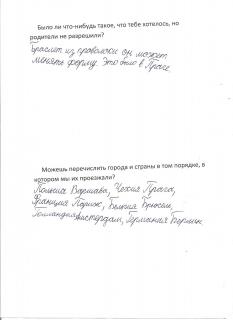 Было ли что-нибудь такое, что тебе хотелось, но
родители не разрешили?
Браслет из проволоки он может
менять форму. Это было в Праге.
Можешь перечислить города и страны в том порядке, в
котором мы их проезжали?
Польша Варшава, Чехия Прага,
Франция Париж, Бельгия Брюсель,
Голландия Амстердам, Германия Берлин.